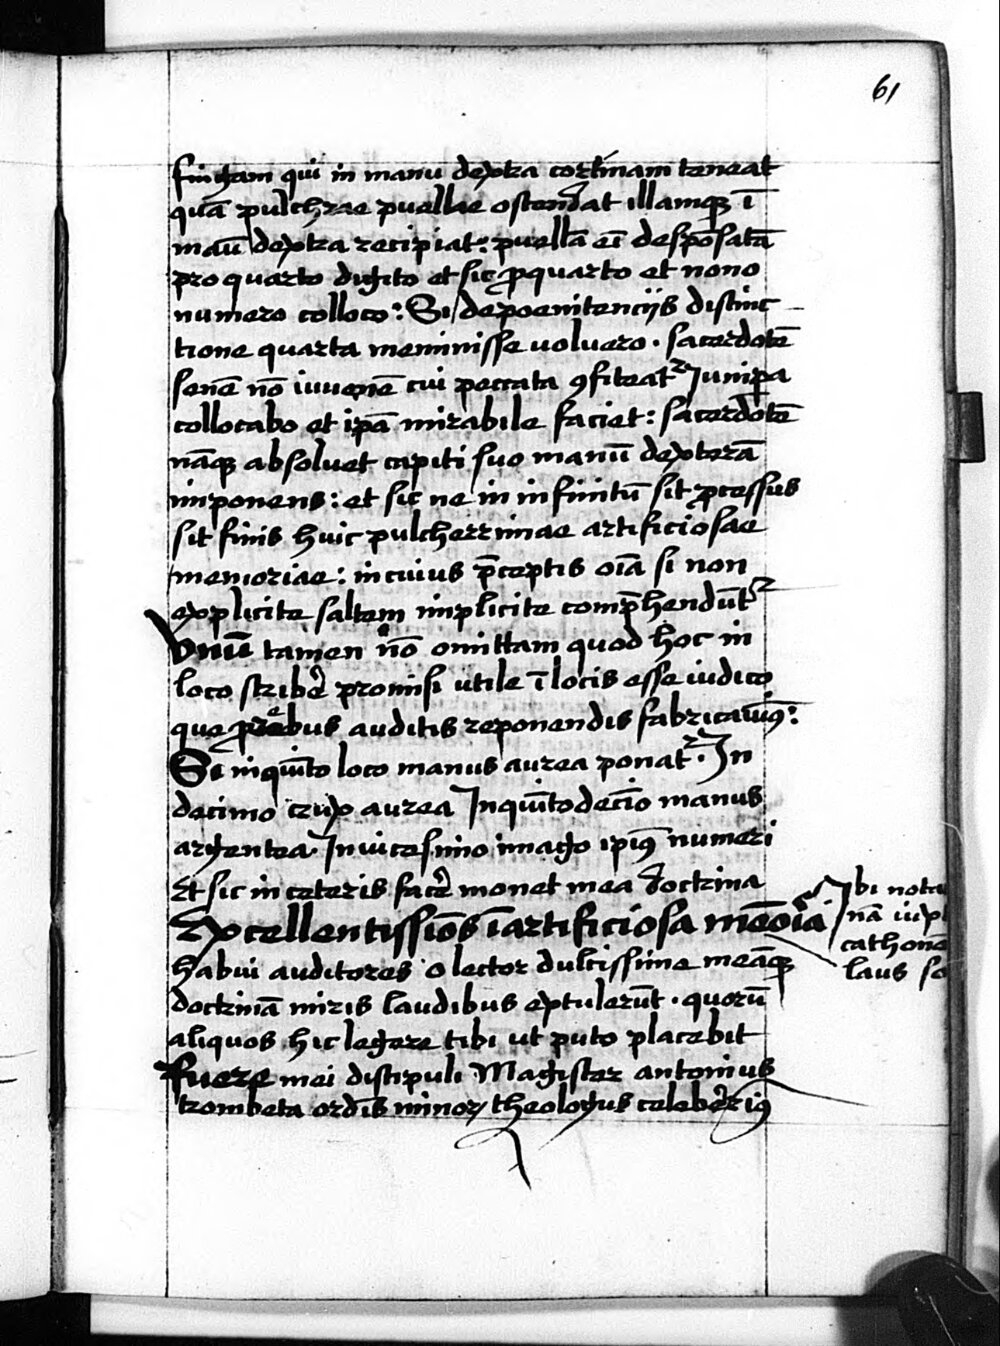 61
fingam qui in manu dextra cortinam teneat
quā pulchrae puellae ostendat illamqꝫ ī
manū dextra recipiat: puellā eī desponsatā
pro quarto digito et sic ꝓ quarto et nono
numero colloco: Si de poenitenciis distinc
tione quarta meminisse voluero. sacerdotē
senē nō iuvenē cui peccata ꝯfiteatᷣ Junipa
collocabo et ipā mirabile faciet: sacerdotē
nāqꝫ absoluet capiti suo manū dexterā
imponens: et sic ne in infinitū sit ꝓcessus
sit finis huic pulcherrimae artificiosae
memoriae: in cuius p̄ceptis oīa si non
explicite saltem implicite comp̄hendūtᷣ
Vnū tamen nō omittam quod hoc in
loco scribe᷑ promisi utile ī locis esse iudico
que auditis reponendis fabricamꝰ:
Se in quīto loco manus aurea ponatᷣ. In
decimo crux aurea In quītodecīo manus
argentea. In vicesimo imago ipiꝰ numeri
Et sic in ceteris face᷑ monet mea doctrina
Excellentissiōs ī artificiosa memoīa
habui auditores o lector dulcissime meāqꝫ
doctrinā miris laudibus extulerūt. quorū
aliquos hic legere tibi ut puto placebit
fuere mei discipuli Magister antonius
trombeta ordīs minoꝝ theologus celeberriꝰ
Ibi nota
nā iux
cathonē
laus so